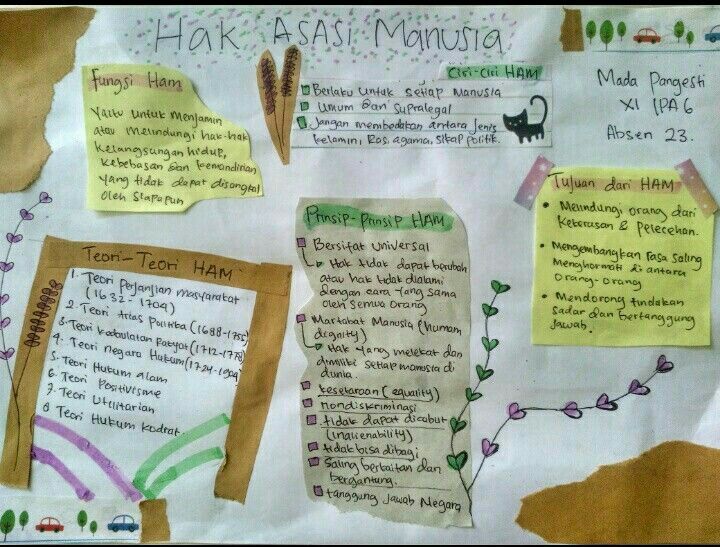 Hak Asasi Manusia
Fungsi Ham
Yaitu untuk menjamin
atau melindungi hak-hak
kelangsungan hidup,
kebebasan dan kemandirian
yang tidak dapat disangkal
oleh siapapun
Ciri-ciri HAM
Berlaku untuk setiap manusia
Umum dan Supralegal
Jangan membedakan antara jenis
kelamin, Ras, agama, sikap politik.
Mada Pangesti
XI IPA 6
Absen 23.
Tujuan dari HAM
• Melindungi orang dari
kekerasan & pelecehan.
• Mengembangkan rasa saling
menghormati di antara
orang-orang
• Mendorong tindakan
sadar dan bertanggung
jawab.
Prinsip-Prinsip HAM
Bersifat universal
Hak tidak dapat berubah
atau hak tidak dialami
dengan cara yang sama
oleh semua orang
Martabat Manusia (human
dignity)
Hak yang melekat dan
dimiliki setiap manusia di
dunia.
kesetaraan (equality)
nondiskriminasi
tidak dapat dicabut
(inalienability)
tidak bisa dibagi
Saling berkaitan dan
bergantung.
tanggung jawab Negara
Teori-Teori HAM
1. Teori perjanjian masyarakat
(1632 - 1704)
2. Teori Trias Politika (1688-1755)
3. Teori kedaulatan Rakyat (1712-1778)
4. Teori negara Hukum (1724-1904)
5. Teori Hukum alam
6. Teori Positivisme
7. Teori Utilitarian
8 Teori Hukum kodrat